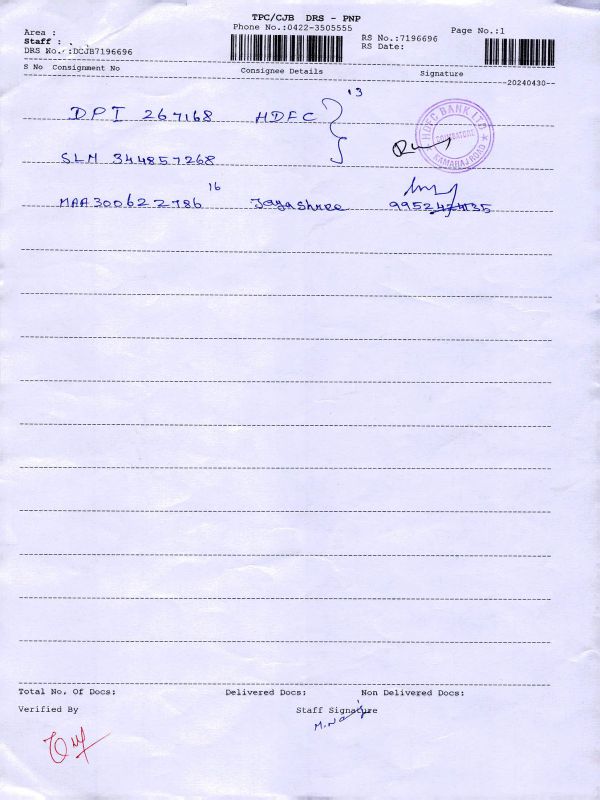 TPC/CJB DRS - PNP
Phone No.:0422-3505555
Area :
Staff :
DRS No. :DCJB7196696
RS No.:7196696
RS Date:
Page No.:1
S No Consignment No Consignee Details Signature
20240430
DPI 267168 HDFC 13
HDFC BANK LTD COIMBATORE KAMARAJ ROAD
SLM 344857268
MAA300622786 16 Jayashree
Total No. Of Docs: Delivered Docs: Non Delivered Docs:
Verified By Staff Signature